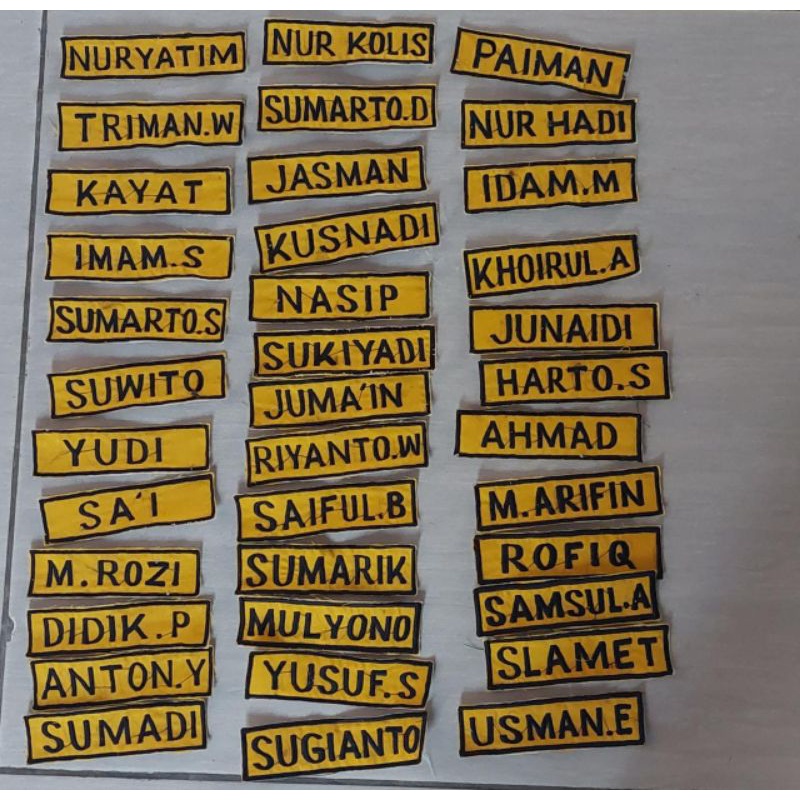 NURYATIM
TRIMAN.W
KAYAT
IMAM.S
SUMARTO.S
SUWITO
YUDI
SA'I
M.ROZI
DIDIK.P
ANTON.Y
SUMADI
NUR KOLIS
SUMARTO.D
JASMAN
KUSNADI
NASIP
SUKIYADI
JUMA'IN
RIYANTO.W
SAIFUL.B
SUMARIK
MULYONO
YUSUF.S
SUGIANTO
PAIMAN
NUR HADI
IDAM.M
KHOIRUL.A
JUNAIDI
HARTO.S
AHMAD
M.ARIFIN
ROFIQ
SAMSUL.A
SLAMET
USMAN.E